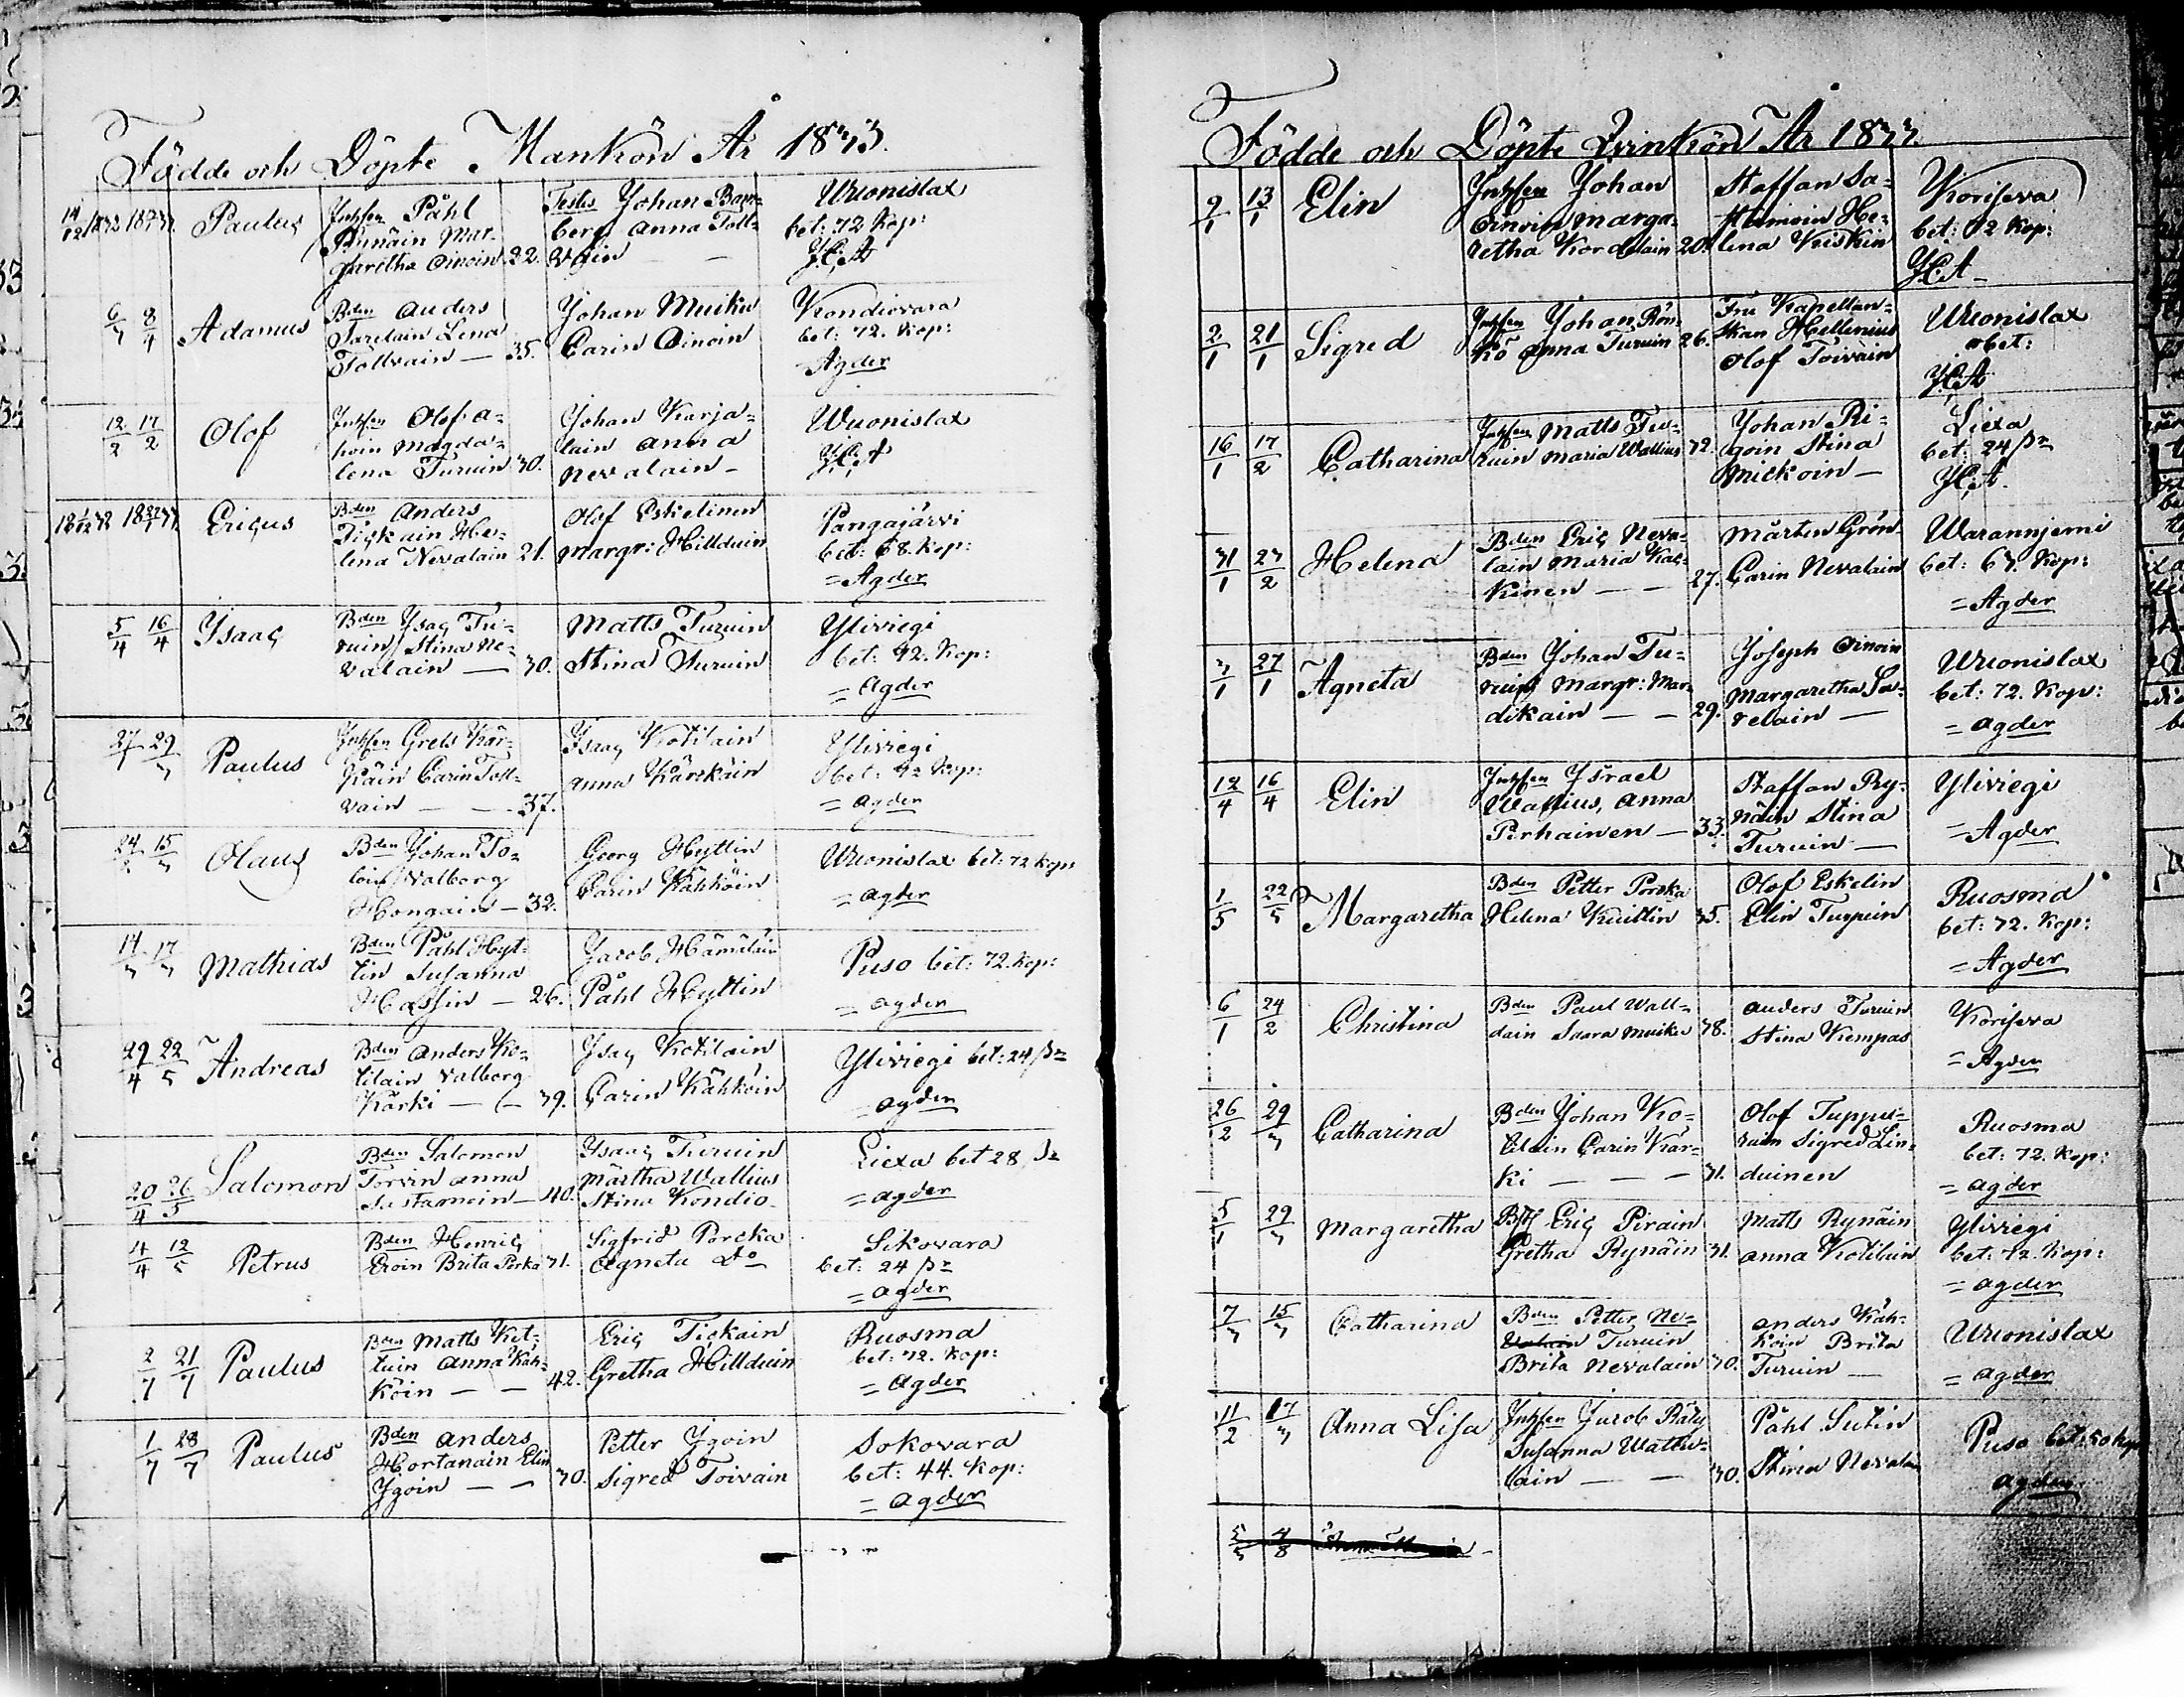 Födde och Döpte Mankön År 1833.
14/12 1832 18 33. Paulus
Inhsen Påhl
Rynäin Mar-
garetha Oinoin 22.
Testes Johan
berg Anna Toll-
väin
Wuonislax
bet: 72 Kop:
6/3 8/4 Adamus
Bden Anders
Sarelain Lena
Tollvain — 35.
Johan Muiku
Carin Oinoin
Kondiovara
bet: 72. Kop:
Agder
12/2 17/2 Olof
Inhsen Olof A-
hoin Magda-
lena Turuin 30.
Johan Karja-
lain Anna
Nevalain -
Wuonislax
Ericus
Bden Anders
Tickain He-
lena Nevalain 21.
Olof Eskelinen
Margr: Hillduin
Pangajärvi
bet: 68. Kop:
= Agder
5/4 16/4 Ysaac
Bden Ysac Tu-
ruin Stina Ne-
valain — 30.
Matts Turuin
Stina Turuin
Yliviegi
bet: 92. Kop:
= Agder
Paulus
Inhsen Grels Kär-
käin Carin Toll-
vain — — 37.
Ysaac Kotilain
Anna Kärckäin
Yliviegi
bet: 92 Kop:
= agder
Olaus
Bden Johan To-
loin Valborg
Hongain — 32.
Georg Hyttin
Carin Kähköin
Wuonislax bet: 72 Kop:
= agder
14/3 17/3 Mathias
Bden Påhl Hyt-
tin Susanna
Hassin — 26.
Jacob Hämäläin
Påhl Hyttin
Puso bet: 72. Kop:
= agder
29/4 22/5 Andreas
Bden Anders Ko-
tilain Valborg
Kärki — — 39.
Ysac Kotilain
Carin Kähköin
Yliviegi bet: 24
= agder
20/4 26/5 Salomon
Bden Salomon
Torvin Anna
Sastamoin — 40.
Ysaac Turuin
Märtha Wallius
Stina Kondio
Liexa bet 28
= agder
4/4 12/5 Petrus
Bden Henric
Eroin Brita Porka 31.
Sigfrid Porcka
Agneta Do
Sikovara
bet: 24
= agder
2/7 21/7 Paulus
Bden Matts Kit-
tuin Anna Käh-
köin — — 42.
Eric Tickain
Gretha Hillduin
Ruosma
bet: 72. Kop:
= Agder
1/7 28/7 Paulus
Bden Anders
Hortanain Elin
Ygoin — — 30.
Petter Ygoin
Sigred Toivain
Sokovara
bet: 44. Kop:
= agder
Födde och Döpte Qvinkön År 1833.
9/1 13/1 Elin
Inhsen Johan
Oinoin Marga-
retha Kordelain 20.
Staffan Sa-
stamoin He-
lena Kiiskin
Koriseva
bet: 72 Kop:
2/1 21/1 Sigred
Inhsen Johan Rön-
kö Anna Turuin 26.
Fru Kapellan-
skan Hellenius
Olof Toivain
Wuonislax
obet:
16/1 17/2 Catharina
Inhsen Matts Tu-
ruin Maria Wallius 32.
Johan Ri-
goin Stina
Mickoin —
Liexa
bet: 24
31/1 23/2 Helena
Bden Eric Neva-
lain Maria Kac-
kinen — — 27.
Mårten Grön
Carin Nevalain
Warannjemi
bet: 67. Kop:
= Agder
3/1 27/1 Agneta
Bden Johan Tu-
ruin Margr: Mar-
dikain — — 29.
Joseph Oinoin
Margaretha Sa-
relain —
Wuonislax
bet: 72. Kop:
= agder
12/4 16/4 Elin
Inhsen Ysrael
Wallius, Anna
Pirhainen — 33.
Staffan Ry-
näin Stina
Turuin —
Yliviegi
= Agder
1/5 22/5 Margaretha
Bden Petter Porcka
Helena Kuittin 35.
Olof Eskelin
Elin Turuin
Ruosma
bet: 72. Kop:
= Agder
6/1 24/2 Christina
Bden Paul Wall-
dain Saara Muiku 38.
Anders Turuin
Stina Kempas
Koriseva
= Agder
26/2 29/3 Catharina
Bden Johan Ko-
tilain Carin Kär-
ki — — — 31.
Olof Tuppu-
rain Sigred Lin-
duinen
Ruosma
bet: 72. Kop:
= agder
5/1 29/3 Margaretha
Eric Pirain
Gretha Rynäin 31.
Matts Rynäin
Anna Kotilain
Yliviegi
bet: 72. Kop:
= agder
7/3 15/3 Catharina
Bden Petter Ne-
valain Turuin
Brita Nevalain 30.
Anders Käh-
köin Brita
Turuin —
Wuonislax
= agder
11/2 17/3 Anna Lisa
Inhsen Jacob Räty
Susanna Wattu-
lain — — 30.
Påhl Sutin
Stina Nevalain
Puso bet: 50 Kop
agder